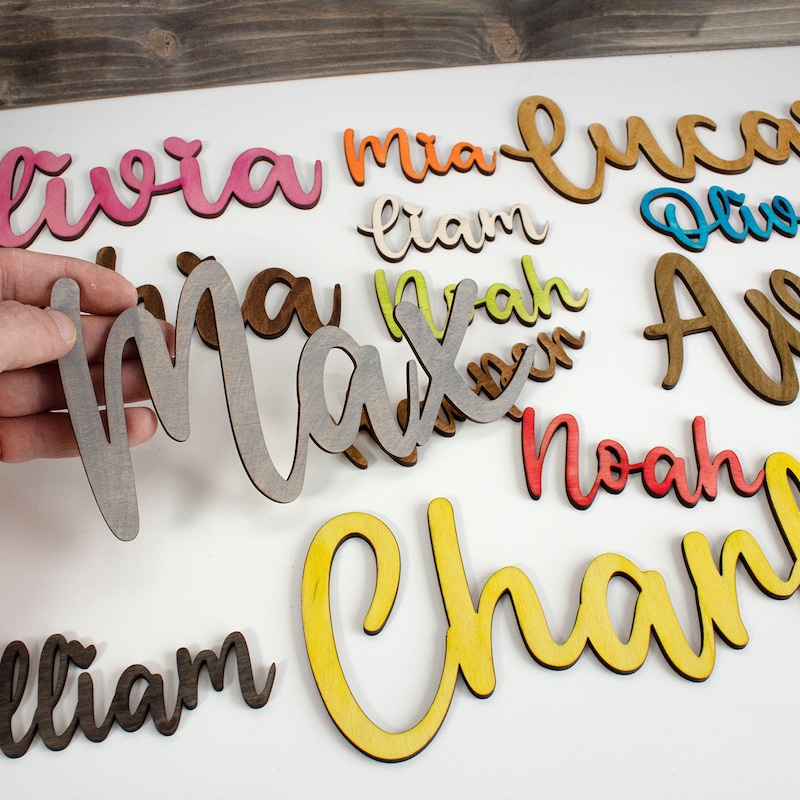 Olivia
Mia
Lucas
Liam
Olivi
Noah
Max
Noah
Chan
William